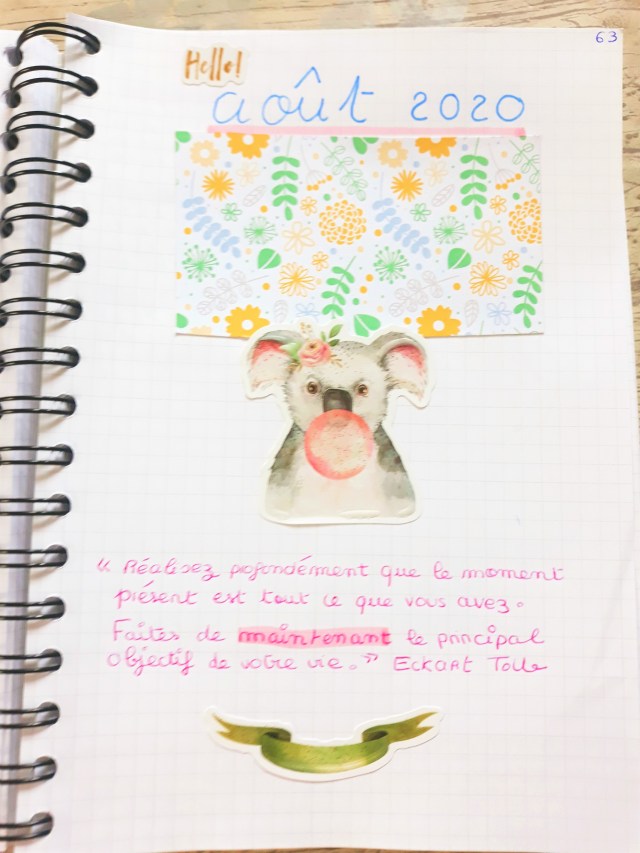 63
Hello!
août 2020
« Réalisez profondément que le moment
présent est tout ce que vous avez.
Faites de maintenant le principal
objectif de votre vie. » Eckart Tolle